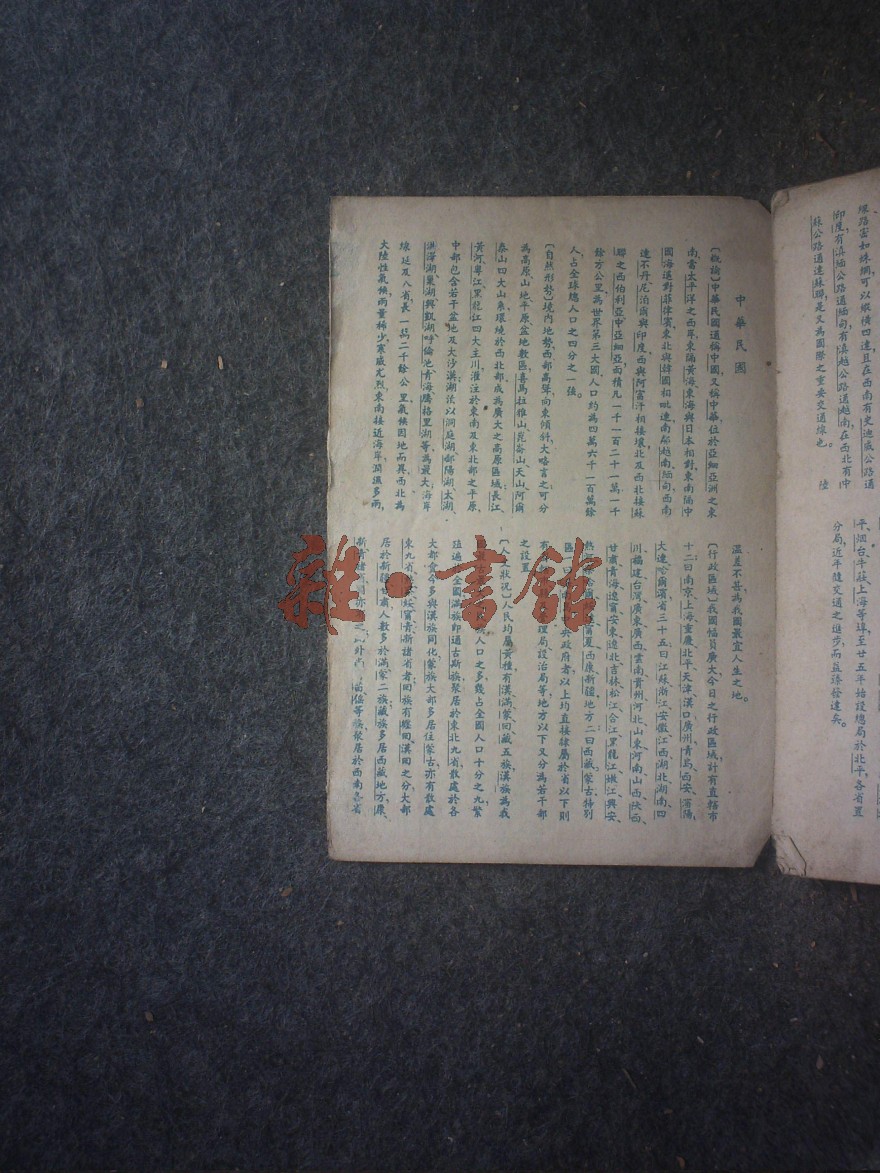 線路密如蛛網可以縱橫四達且在西南有史迪威公路通
印度有滇緬公路通緬甸有滇越公路通越南在西北有中
蘇公路通達蘇聯是又為國際之重要交通線也。
陸
平烟台牛莊上海等埠至廿五年始設總局於北平各省置
分局近年隨交通之進步而益臻發達矣。
中華民國
〔概論〕中華民國通稱中國又稱中華位於亞細亞洲之東
南當太平洋之西岸東隔黃海東海與日本相對東南隔中
國海遥對菲律賓東北與韓國相毗連南鄰越南緬甸西南
達不丹尼泊爾與印度西與阿富汗相接壤北及西北接蘇
聯之西伯利亞中亞細亞面積凡一千一百二十一萬一千
餘方公里為世界第三大國人口約為四萬六千一百萬餘
人占全球總人口之四分之一強。
〔自然形勢〕境内地勢西部高聳向東傾斜大略言之可分
為高原山地平原盆地數區喜馬拉雅山崑崙山天山阿爾
泰山四大山系環境於西北部成為廣大之高原區域長江
黃河粵江黑龍江四大主川灌注於東南及東北部之平原
中部包含若干盆地及大沙漠湖泊以洞庭湖鄱陽湖太湖
洪澤湖巢湖興凱湖呼倫池青海騰格里湖等為最大海岸
線延及八省長一萬二千餘公里氣候因地而異西北為
大陸性氣候雨量稀少寒威尤烈東南接近海岸潤濕多雨
溫差不甚為我國最宜人生之地。
〔行政區域〕我國幅員廣大今日之行政區域計有直轄市
十二曰南京上海重慶北平天津漢口廣州青島西安瀋陽
大連哈爾濱省三十五曰江蘇浙江安徽江西湖北湖南四
川福建台灣廣東廣西雲南貴州河北山東河南山西陝西
甘肅青海遼寧安東遼北吉林松江合江黑龍江嫩江興安
熱 寧夏西康新疆地方二曰西藏蒙古特別
區 央政府者以上均直接隸屬於省以下則
有 理局設治局等地方以下又分為若干部
之設置
〔人文狀況〕人民均屬黃種有漢滿蒙回藏五族漢族為我
人口之多幾占全國人口十分之九繁
殖遍 全國滿族即通古斯族聚居於東北九省散處於各
大都會今多與漢族同化蒙族大部多居住蒙古亦有散處
東九省 綏寧青新諸省者回族有纏回漢回之分大部
居於新疆甘肅人數多於滿蒙二族藏族多居西藏地方康
新青諸 亦 之 外 苗傜等族聚居於西南各省
雜·書館